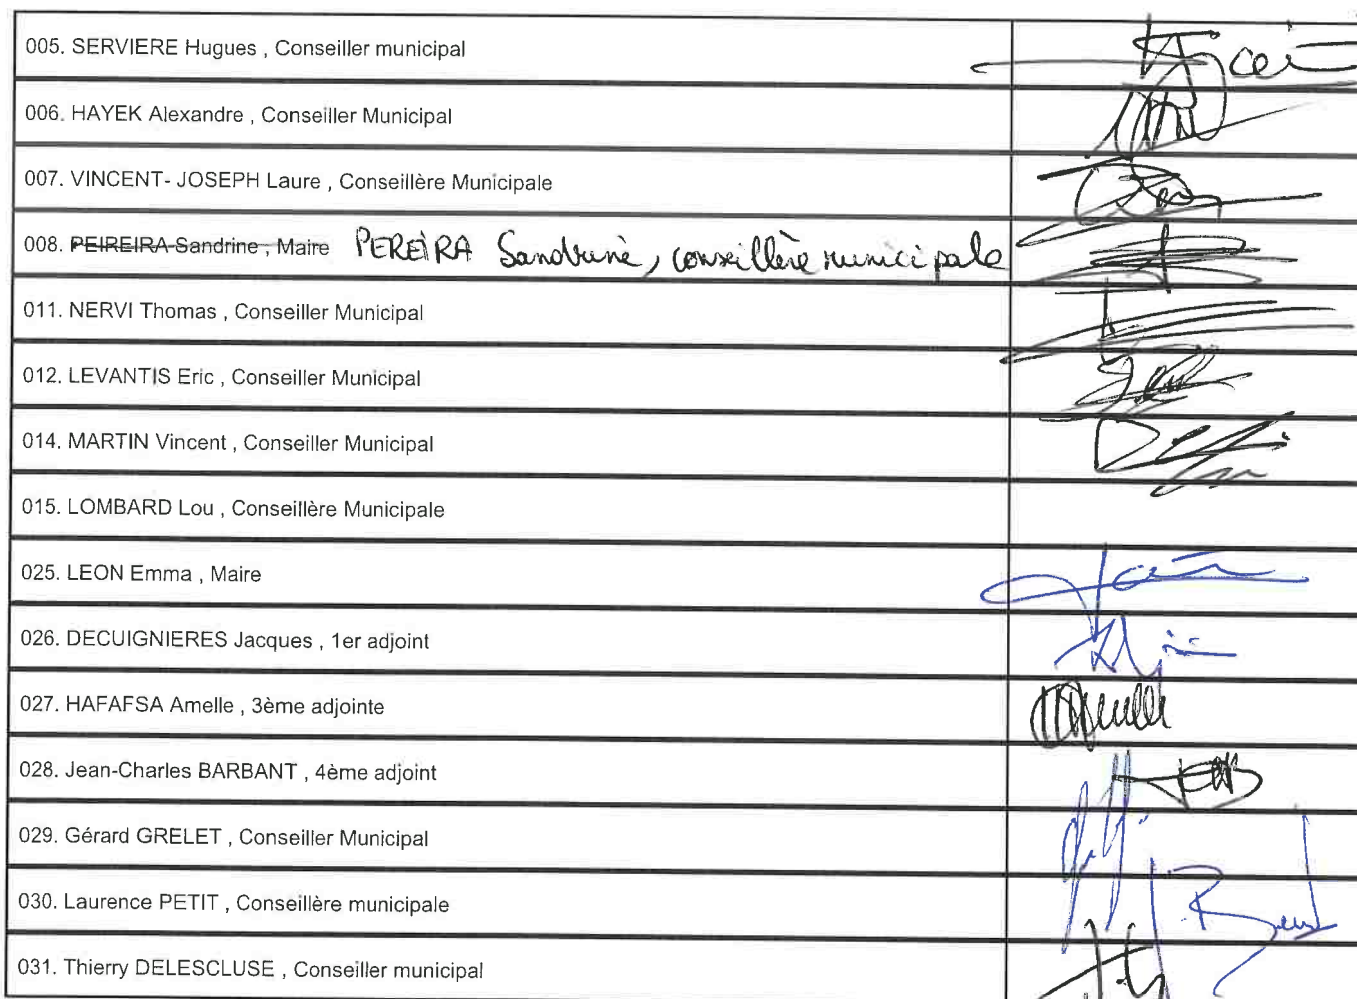 005. SERVIERE Hugues , Conseiller municipal
006. HAYEK Alexandre , Conseiller Municipal
007. VINCENT- JOSEPH Laure , Conseillère Municipale
008. PEIREIRA Sandrine , Maire PEREIRA Sandrine, conseillère municipale
011. NERVI Thomas , Conseiller Municipal
012. LEVANTIS Eric , Conseiller Municipal
014. MARTIN Vincent , Conseiller Municipal
015. LOMBARD Lou , Conseillère Municipale
025. LEON Emma , Maire
026. DECUIGNIERES Jacques , 1er adjoint
027. HAFAFSA Amelle , 3ème adjointe
028. Jean-Charles BARBANT , 4ème adjoint
029. Gérard GRELET , Conseiller Municipal
030. Laurence PETIT , Conseillère municipale
031. Thierry DELESCLUSE , Conseiller municipal